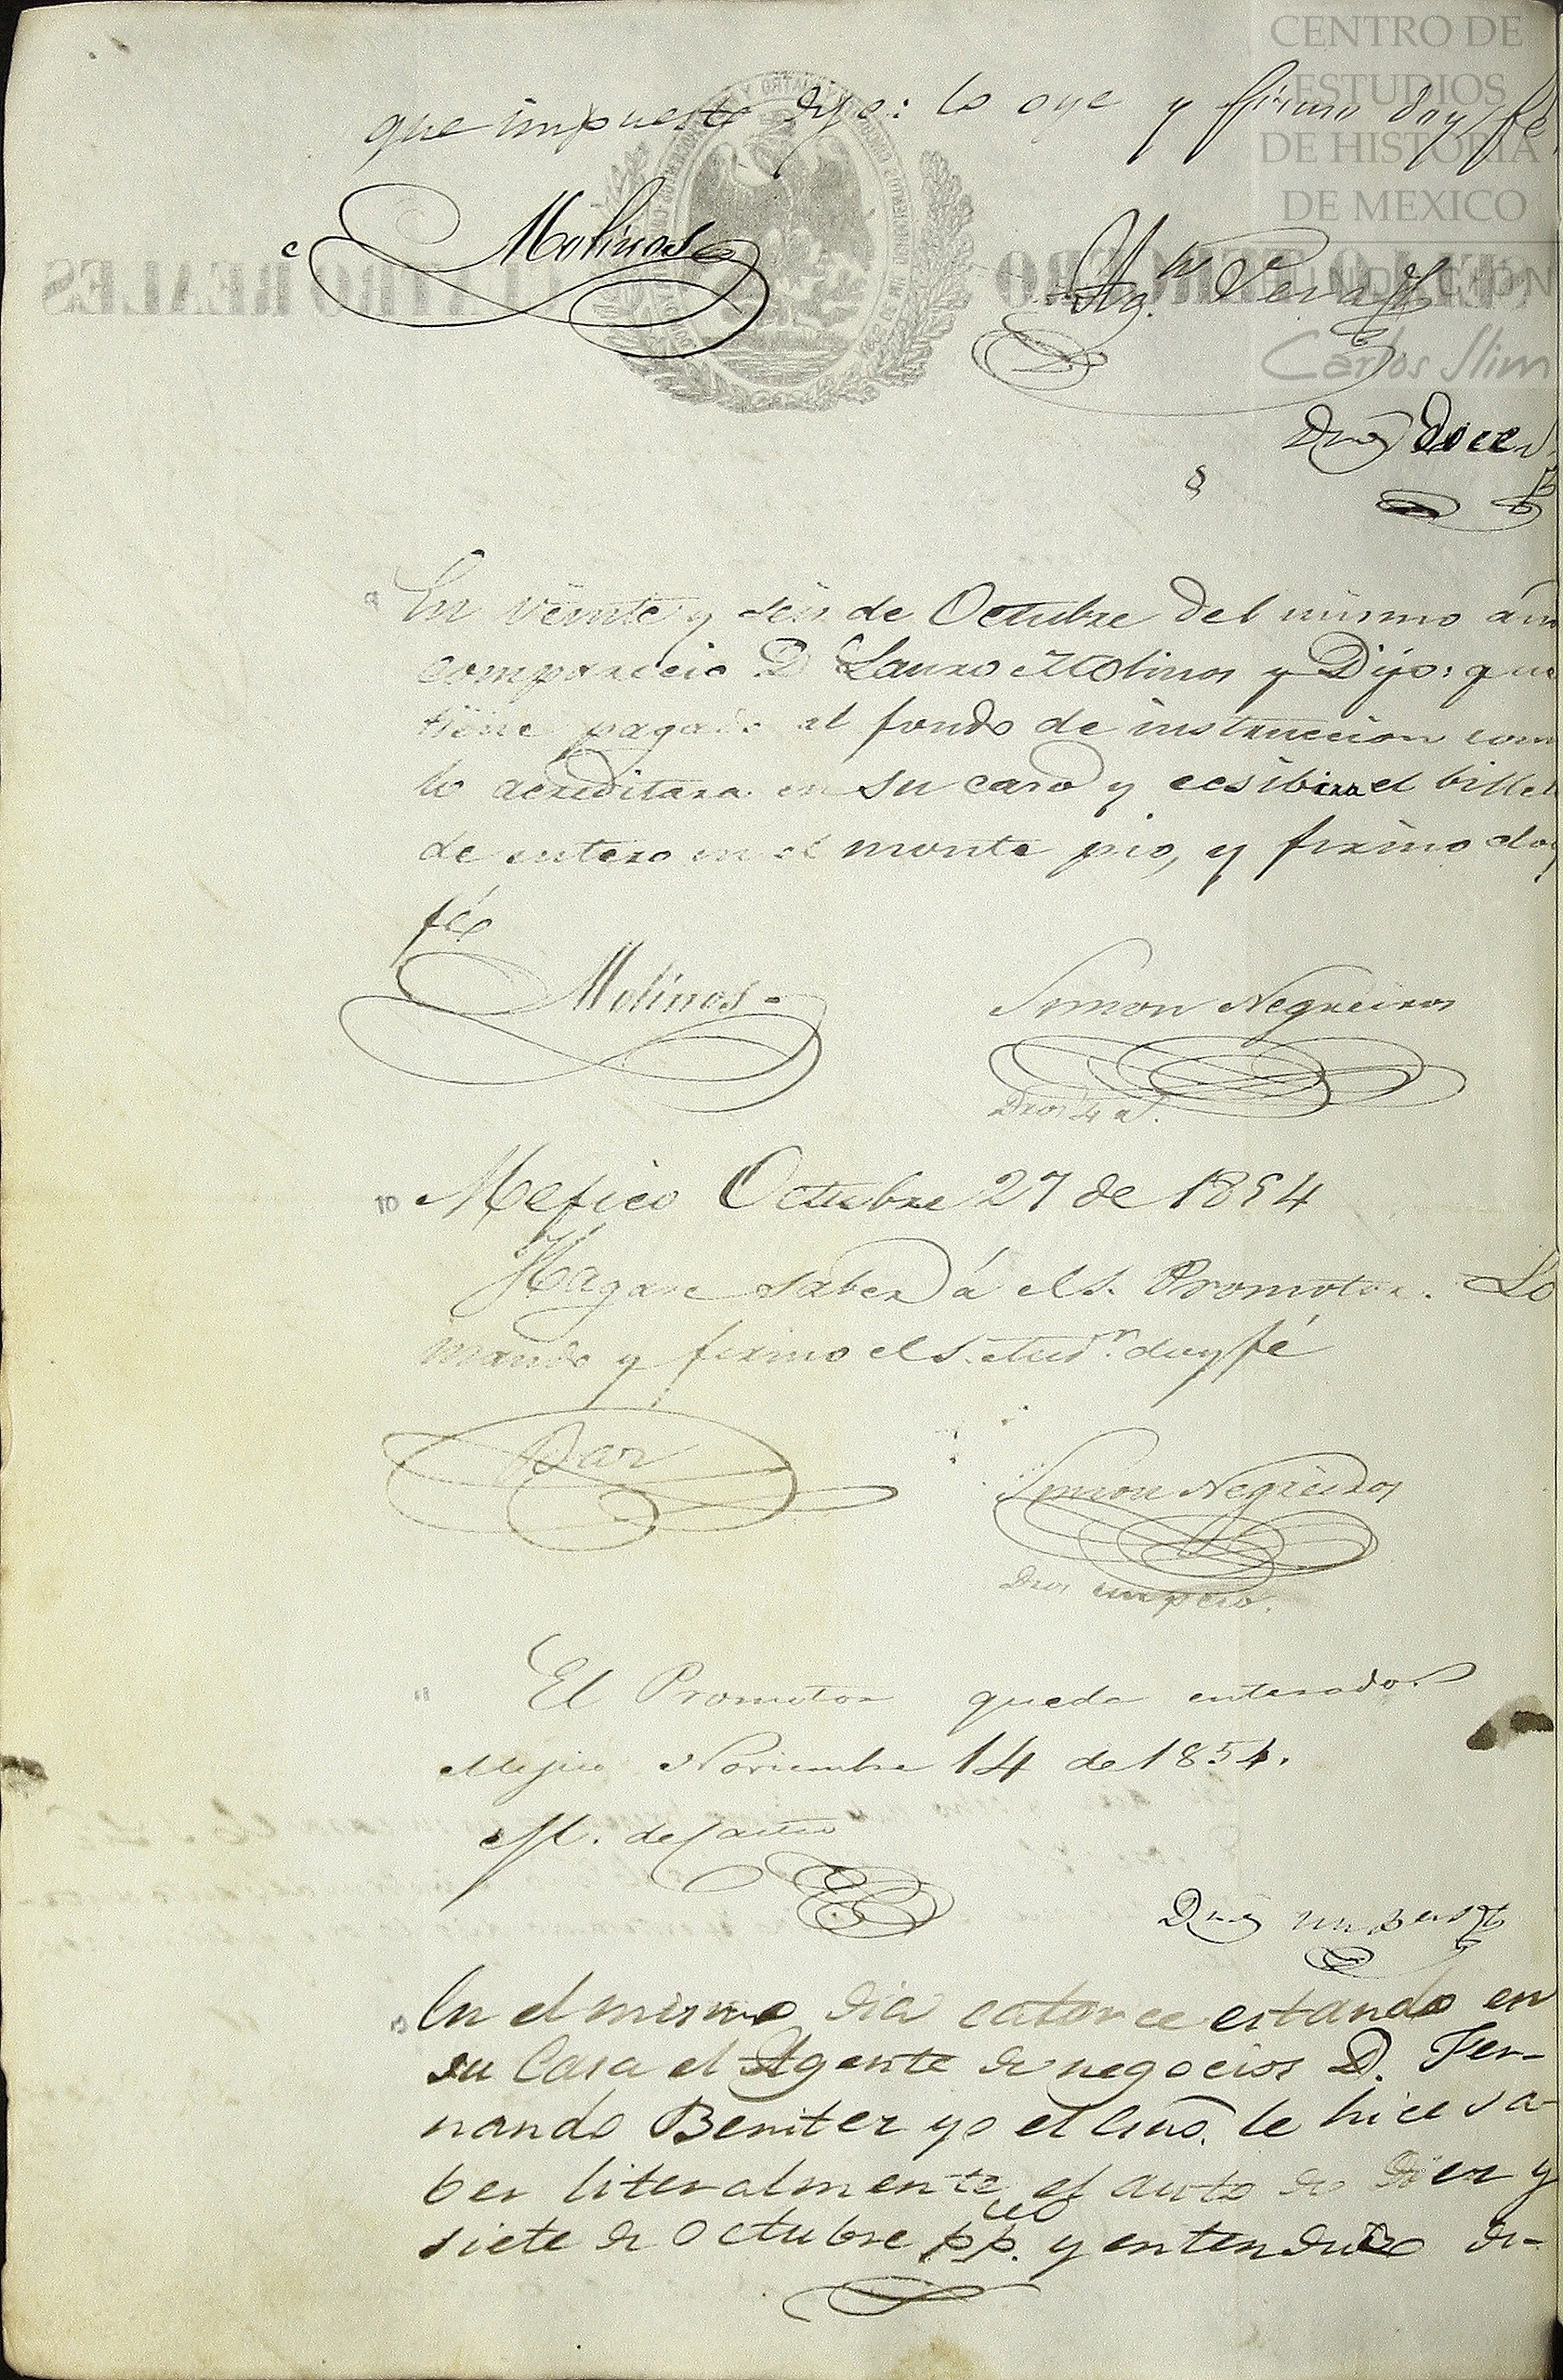 CENTRO DE
ESTUDIOS
DE HISTORIA
DE MEXICO
FUNDACIÓN
Carlos Slim
que impuesto dijo: lo oye y firmo doy fe
Molinos
Ag.n
Dros doce
En veinte y seis de Octubre del mismo año
comparecio D. Lauro Molinos y Dijo: que
tiene pagado al fondo de instruccion como
lo acreditara en su caso y ecsibira el billete
de entero en el monte pio, y firmo doy
fé
Molinos.
Simon Negreiros
Dros 4 r.
10 Mejico Octubre 27 de 1854
Hagase saber á el S. Promotor. Lo
mando y firmo el S. Aud.r doy fé
Simon Negreiros
Dros un peso.
11 El Promotor queda enterado.
Mejico Noviembre 14 de 1854.
M. de Castro
Dros un peso
En el mismo dia catorce estando en
su Casa el Agente de negocios D. Fer-
nando Benitez yo el Esno. le hice sa-
ber literalmente el auto de diez y
siete de Octubre pp. y entendido di-